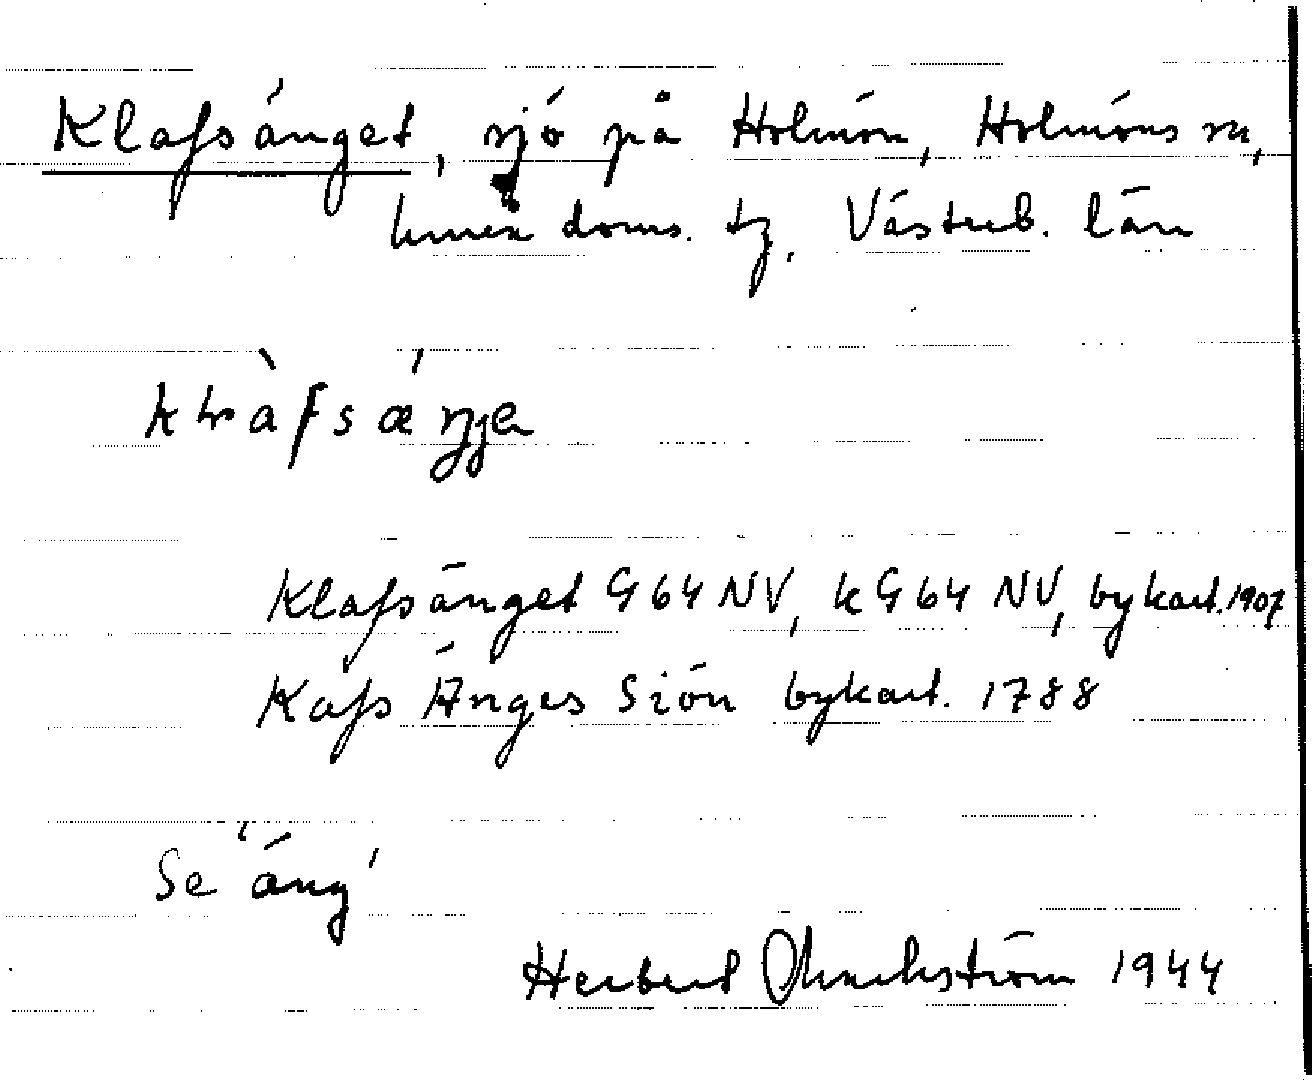 Klafsänget, sjö på Holmön, Holmöns sn,
Umeå doms. tg. Västerb. län
Klafsänget G64 NV, kG64 NV, bykart. 1907
Kafs Änges Siön bykart. 1788
Se 'äng'
Herbert 1944